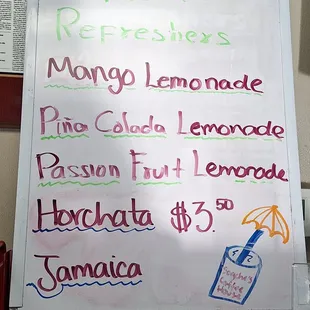 Refreshers
Mango Lemonade
Piña Colada Lemonade
Passion Fruit Lemonade
Horchata $3.50
Jamaica
Coffee
House